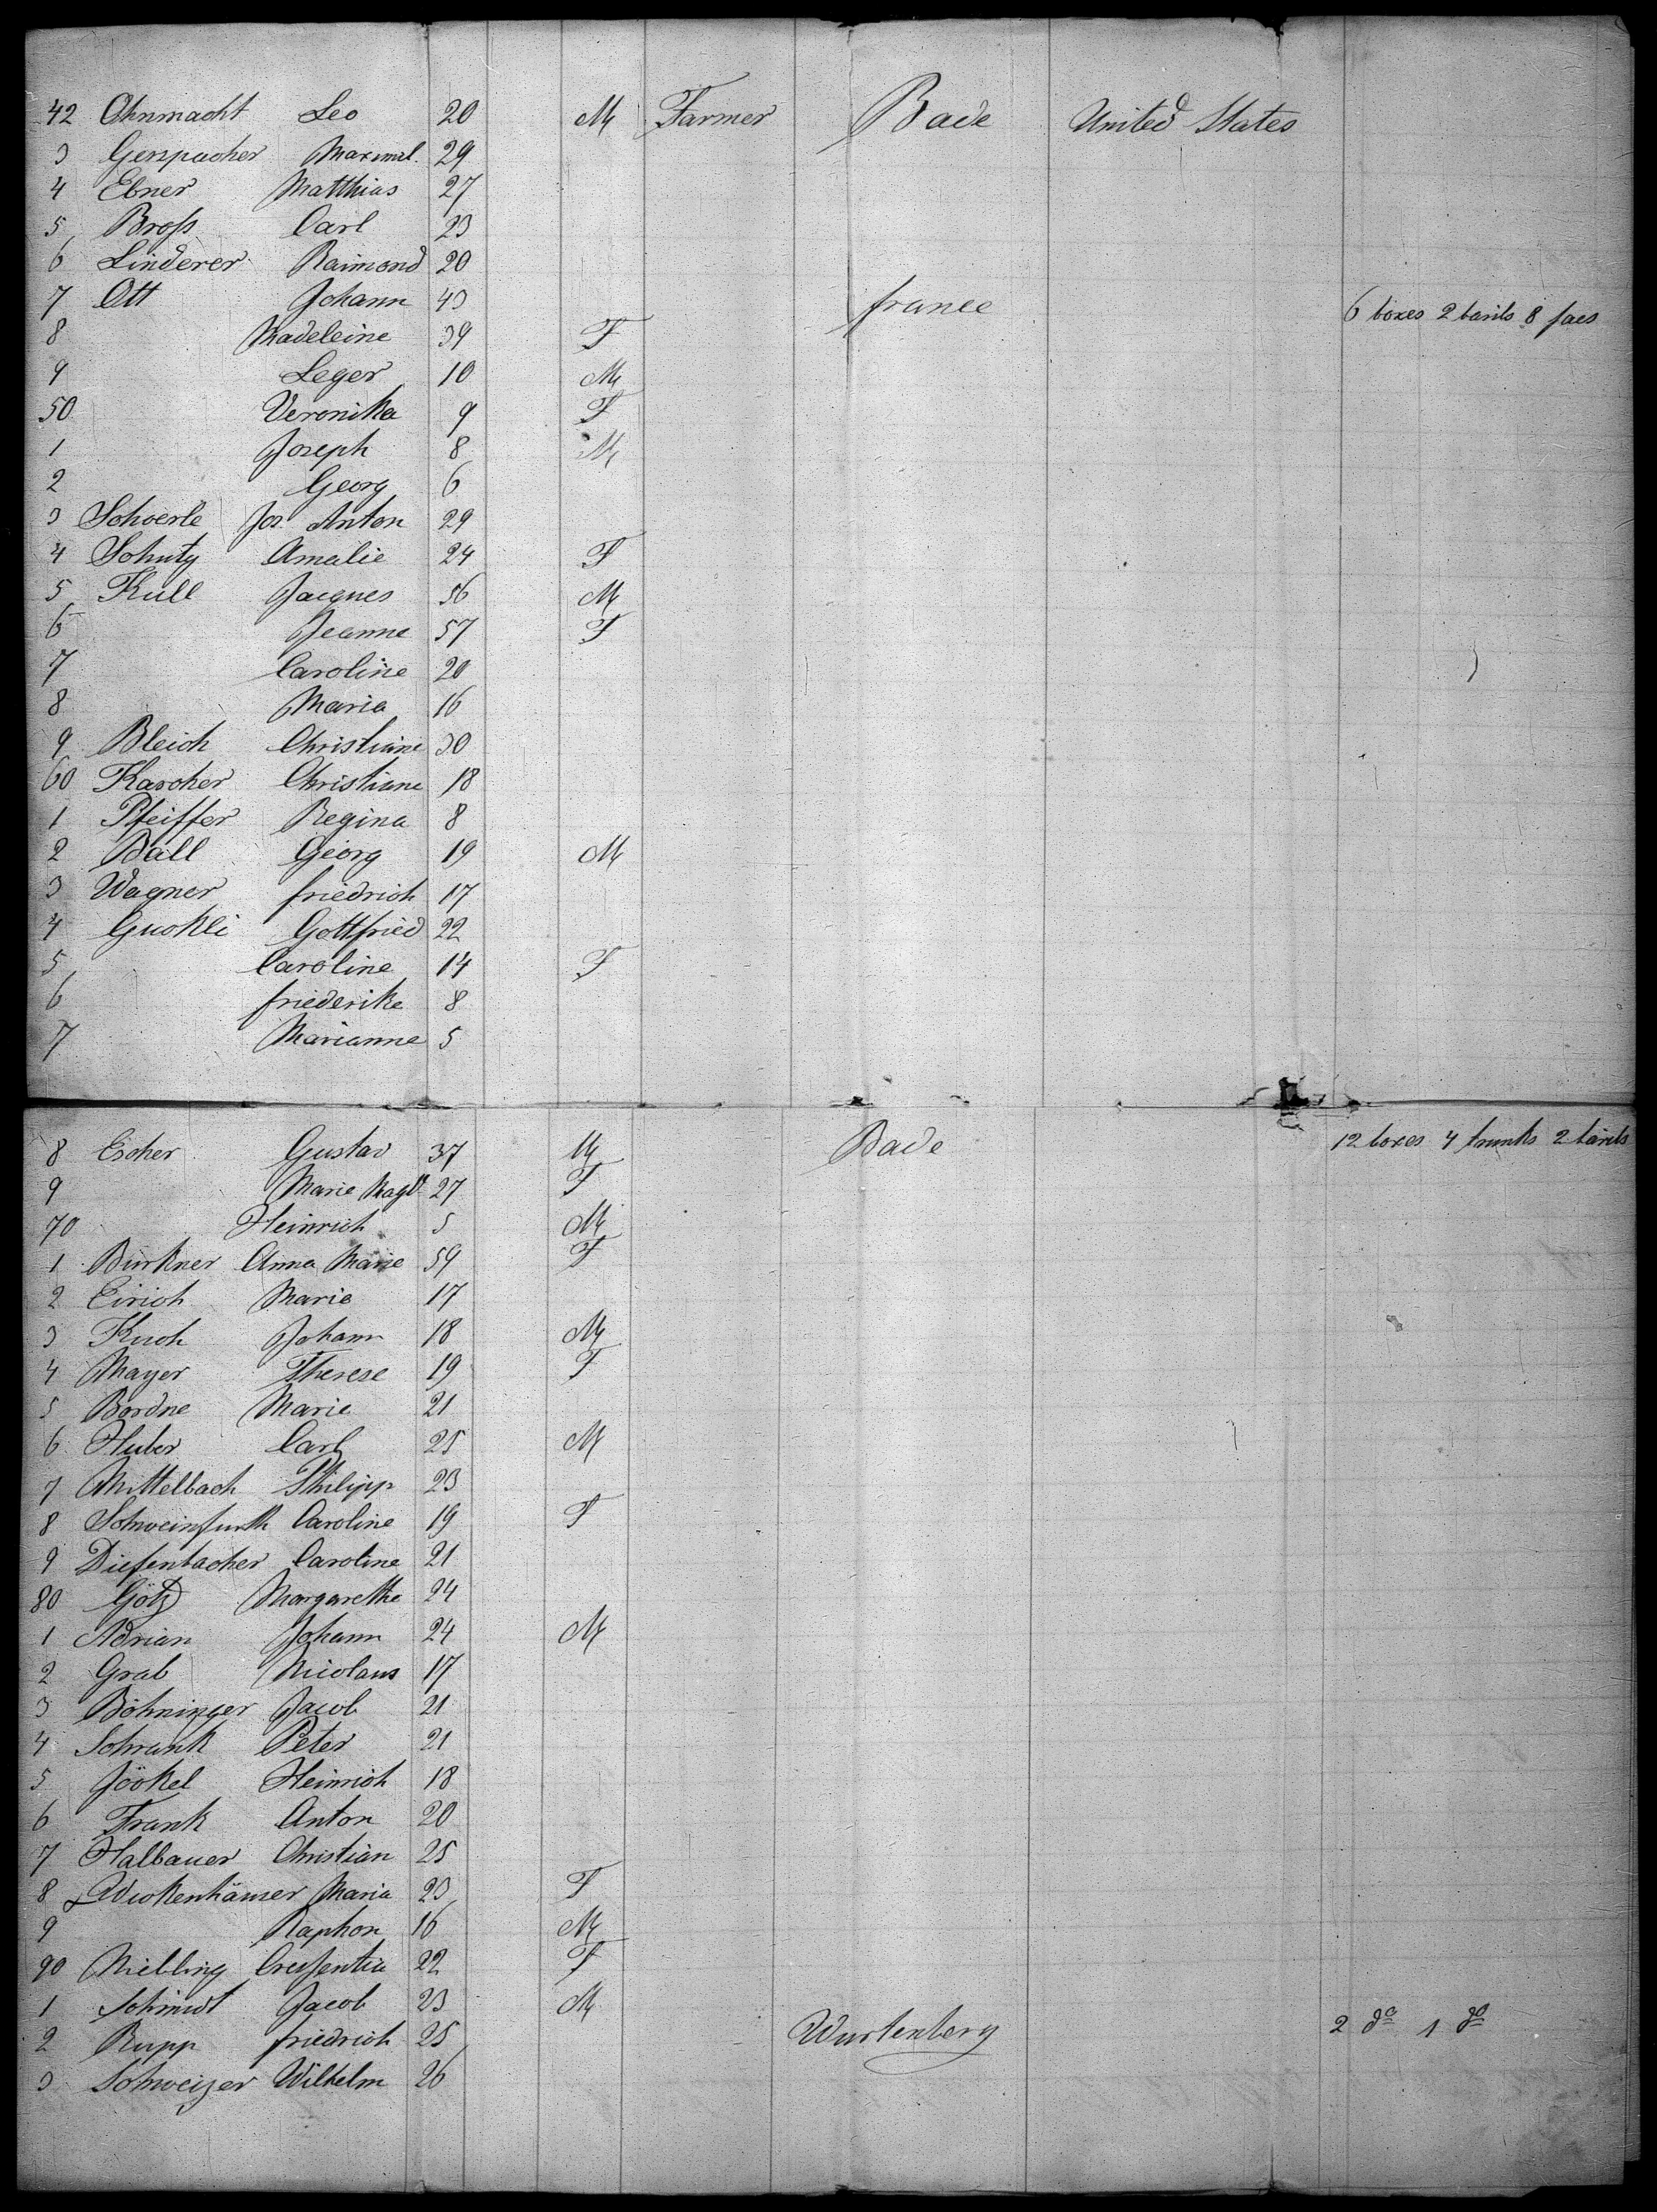 42 Ohnmacht Leo 20 M Farmer Bade United States
3 Gerspacher Maximil. 29
4 Ebner Matthias 27
5 Broß Carl 23
6 Linderer Raimond 20
7 Ott Johann 43 france 6 boxes 2 barils 8 sacs
8 Madeleine 39 F
9 Leger 10 M
50 Veronika 9 F
1 Joseph 8 M
2 Georg 6
3 Schwerle Jos. Anton 29
4 Schuty Amalie 24 F
5 Kull Jacques 56 M
6 Jeanne 57 F
7 Caroline 20
8 Maria 16
9 Bleich Christiane 30
60 Karcher Christiane 18
1 Pfeiffer Regina 8
2 Ball Georg 19 M
3 Wagner friedrich 17
4 Guckli Gottfried 22
5 Caroline 14 F
6 friederike 8
7 Marianne 5
8 Escher Gustav 37 M Bade 12 boxes 4 trunks 2 barils
9 Marie Magd. 27 F
70 Heinrich 5 M
1 Burkner Anna Marie 59 F
2 Eirich Marie 17
3 Kuch Johann 18 M
4 Mayer Therese 19 F
5 Bordne Marie 21
6 Huber Carl 25 M
7 Mittelbach Philipp 23
8 Schweinfurth Caroline 19 F
9 Diefenbacher Caroline 21
80 Götz Margarethe 24
1 Adrian Johann 24 M
2 Grab Nicolaus 17
3 Böhninger Jacob 21
4 Schrank Peter 21
5 Jöckel Heinrich 18
6 Frank Anton 20
7 Halbauer Christian 25
8 Wickenhäuser Maria 23 F
9 Raphon 16 M
90 Miebling Creszentia 22 F
1 Schmidt Jacob 23 M
2 Rupp friedrich 25 Wurtenberg 2 do 1 do
3 Schweizer Wilhelm 26